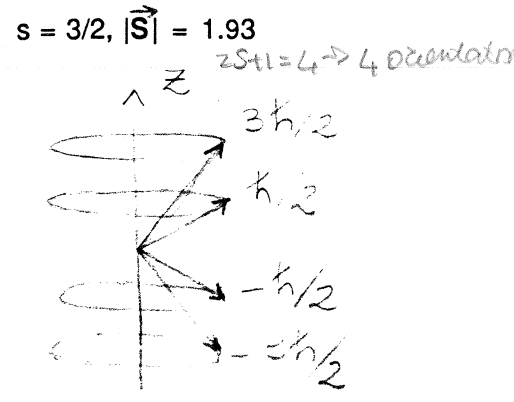 s = 3/2, |S⃗| = 1.93
2S+1=4 → 4 orientation
Z
3ħ/2
ħ/2
-ħ/2
-3ħ/2